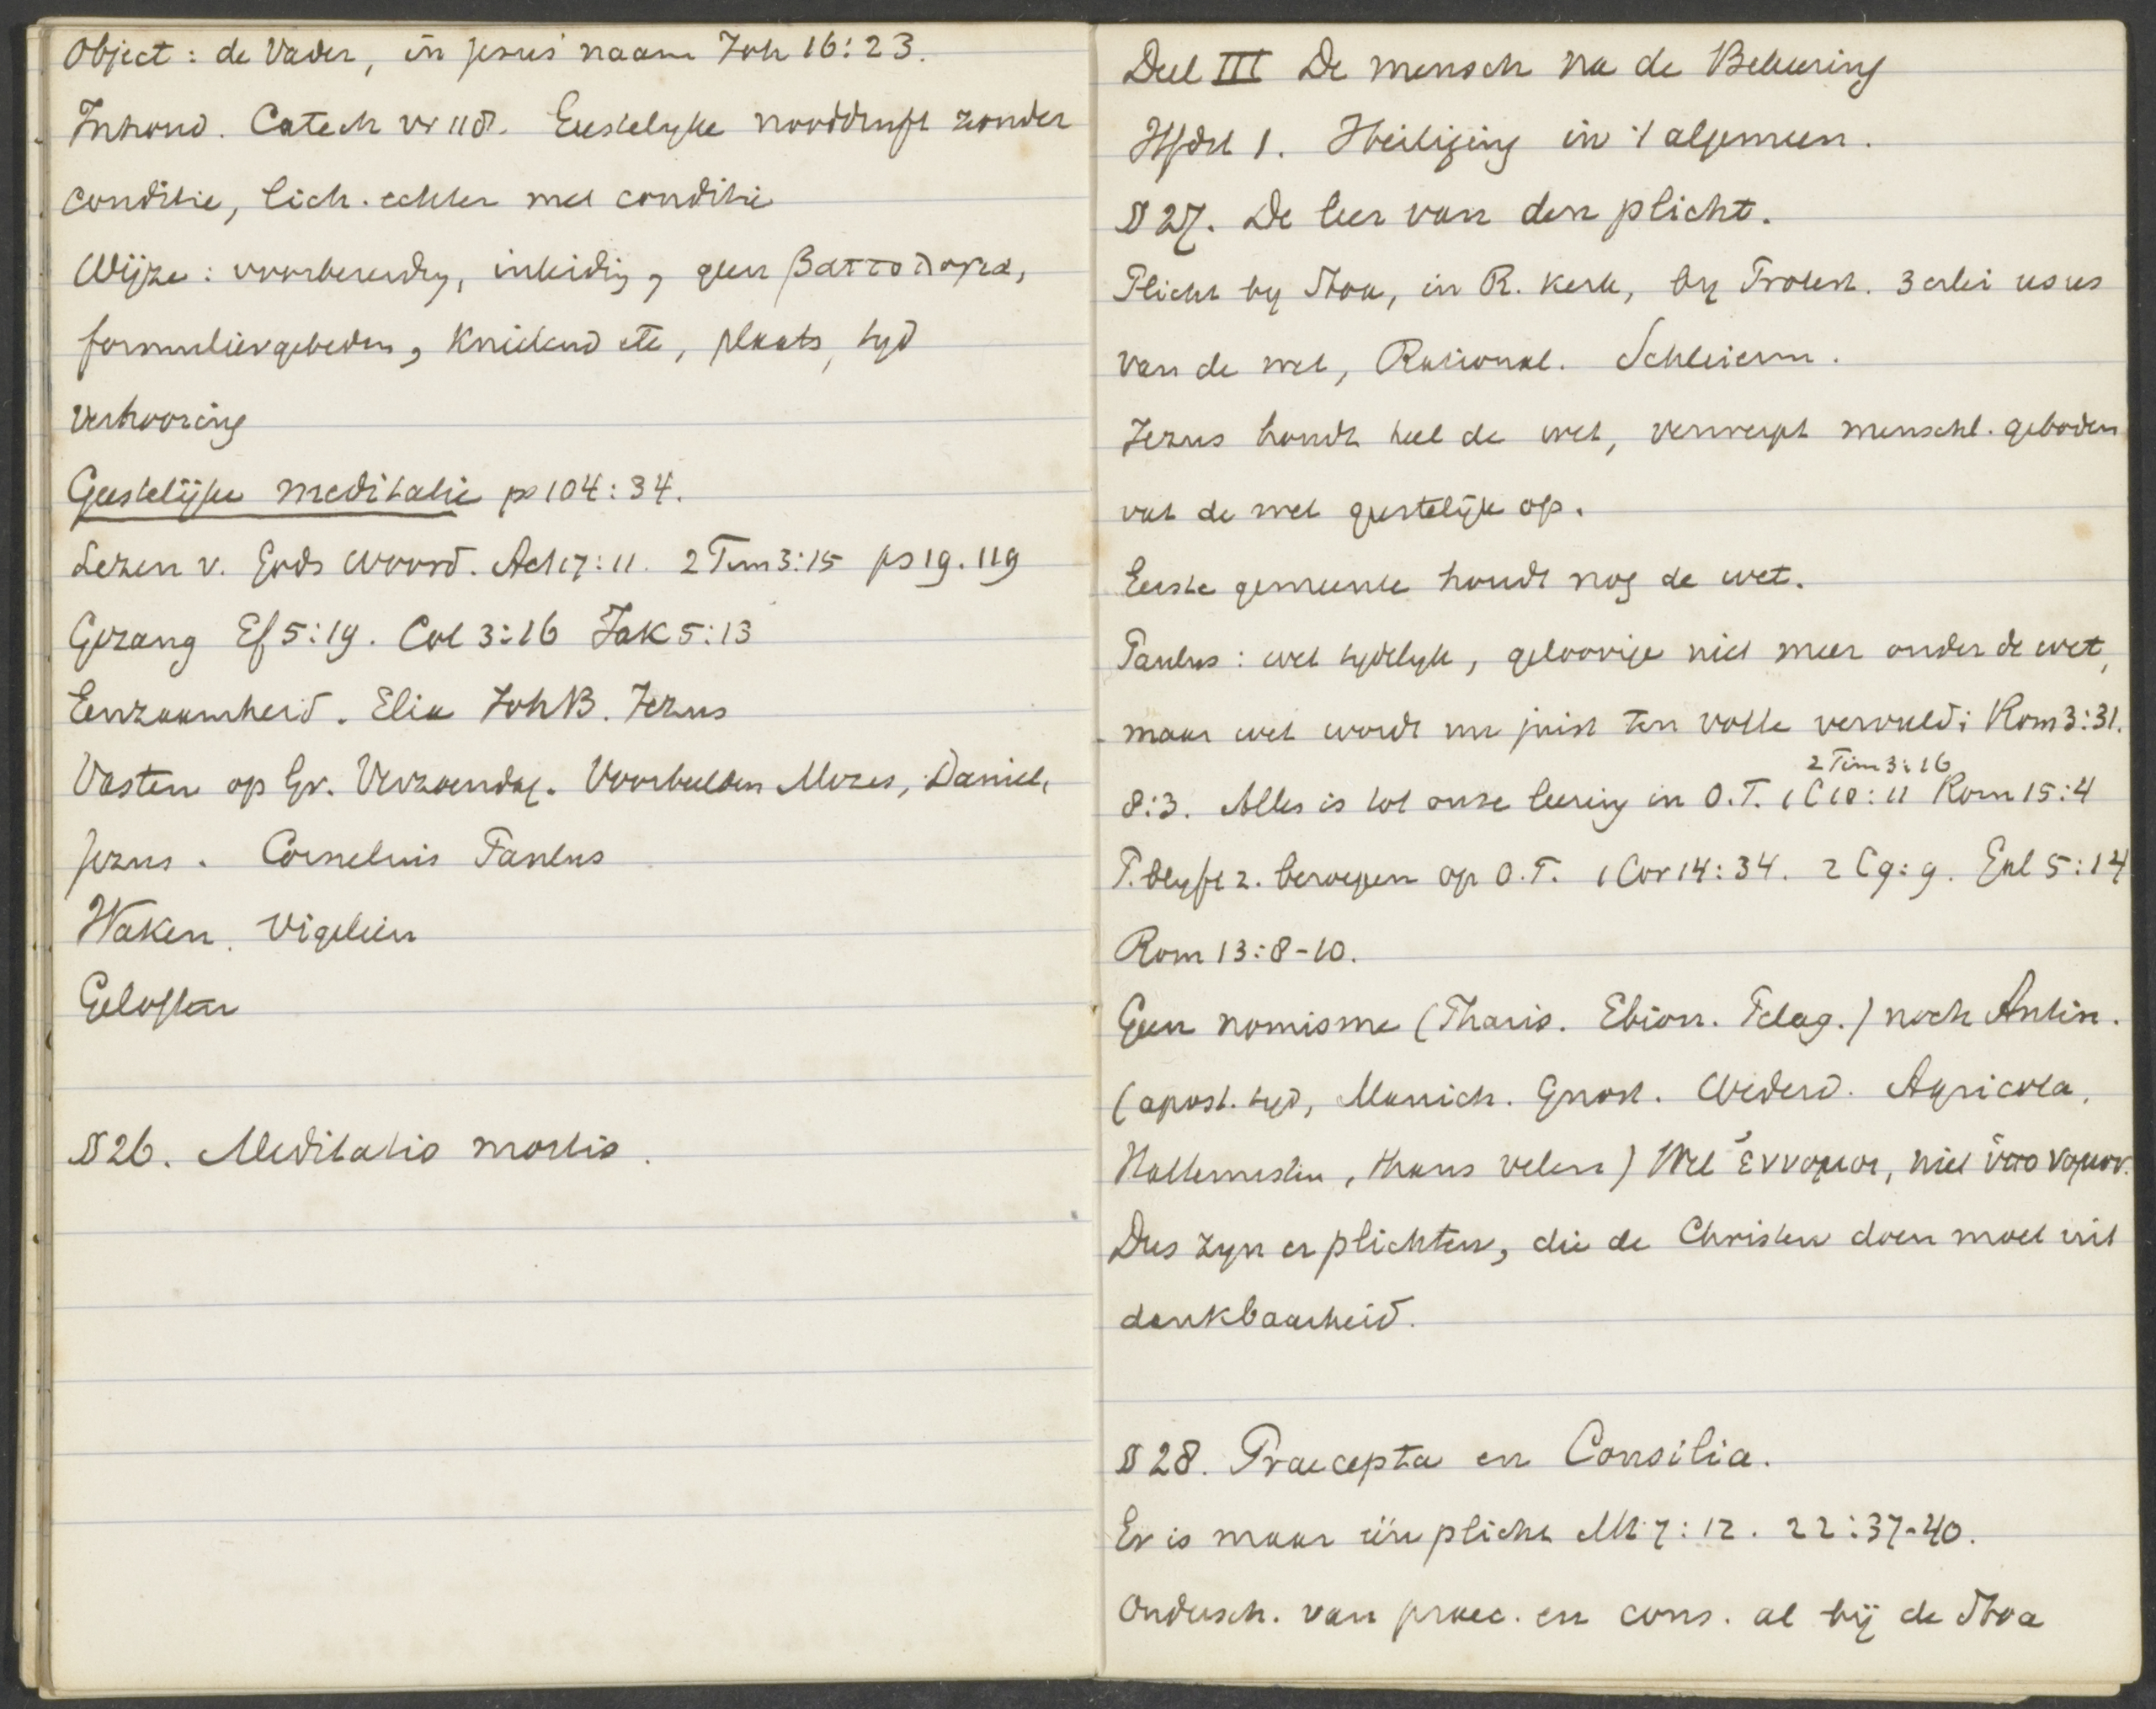 Object: de Vader, in Jesus' naam Joh 16:23.
Inhoud. Catech vr 118. Geestelyke nooddruft zonder
conditie, lich. echter met conditie
Wijze: voorbereidg, inleidig, geen βαττολογια,
formuliergebeden, knielend etc, plaats, tyd
Verhooring
Geestelijke meditatie ps 104:34.
Lezen v. Gods Woord. Act 17:11. 2 Tim 3:15 ps 19. 119
Gezang Ef 5:19. Col 3:16 Jak 5:13
Eenzaamheid. Elia Joh B. Jezus
Vasten op Gr. Verzoendag. Voorbeelden Mozes, Daniel,
Jezus. Cornelius Paulus
Waken. Vigiliën
Geloften
§ 26. Meditatio mortis.
Deel III De mensch na de Bekeering
Hfdst 1. Heiliging in 't algemeen.
§ 27. De leer van den plicht.
Plicht by Stoa, in R. kerk, by Protest. 3 erlei usus
van de wet, Rational. Schleierm.
Jezus houdt heel de wet, verwerpt menschl. geboden
vat de wet geestelijk op.
Eerste gemeente houdt nog de wet.
Paulus: wet tydelyk, geloovige niet meer onder de wet,
maar wet wordt nu juist ten volle vervuld: Rom 3:31.
2 Tim 3:16
8:3. Alles is tot onze leering in O.T. 1 C 10:11 Rom 15:4
P. blyft z. beroepen op O.T. 1 Cor 14:34. 2 C 9:9. Gal 5:14
Rom 13:8-10.
Geen nomisme (Pharis. Ebion. Pelag.) noch Antin.
(apost. tyd, Manich. Gnost. Wederd. Agricola,
Hattemisten, thans velen) Wel ἔννομοι, niet ὑπο νομον.
Dus zyn er plichten, die de Christen doen moet uit
dankbaarheid.
§ 28. Praecepta en Consilia.
Er is maar één plicht Mt 7:12. 22:37-40.
Ondersch. van praec. en cons. al bij de Stoa